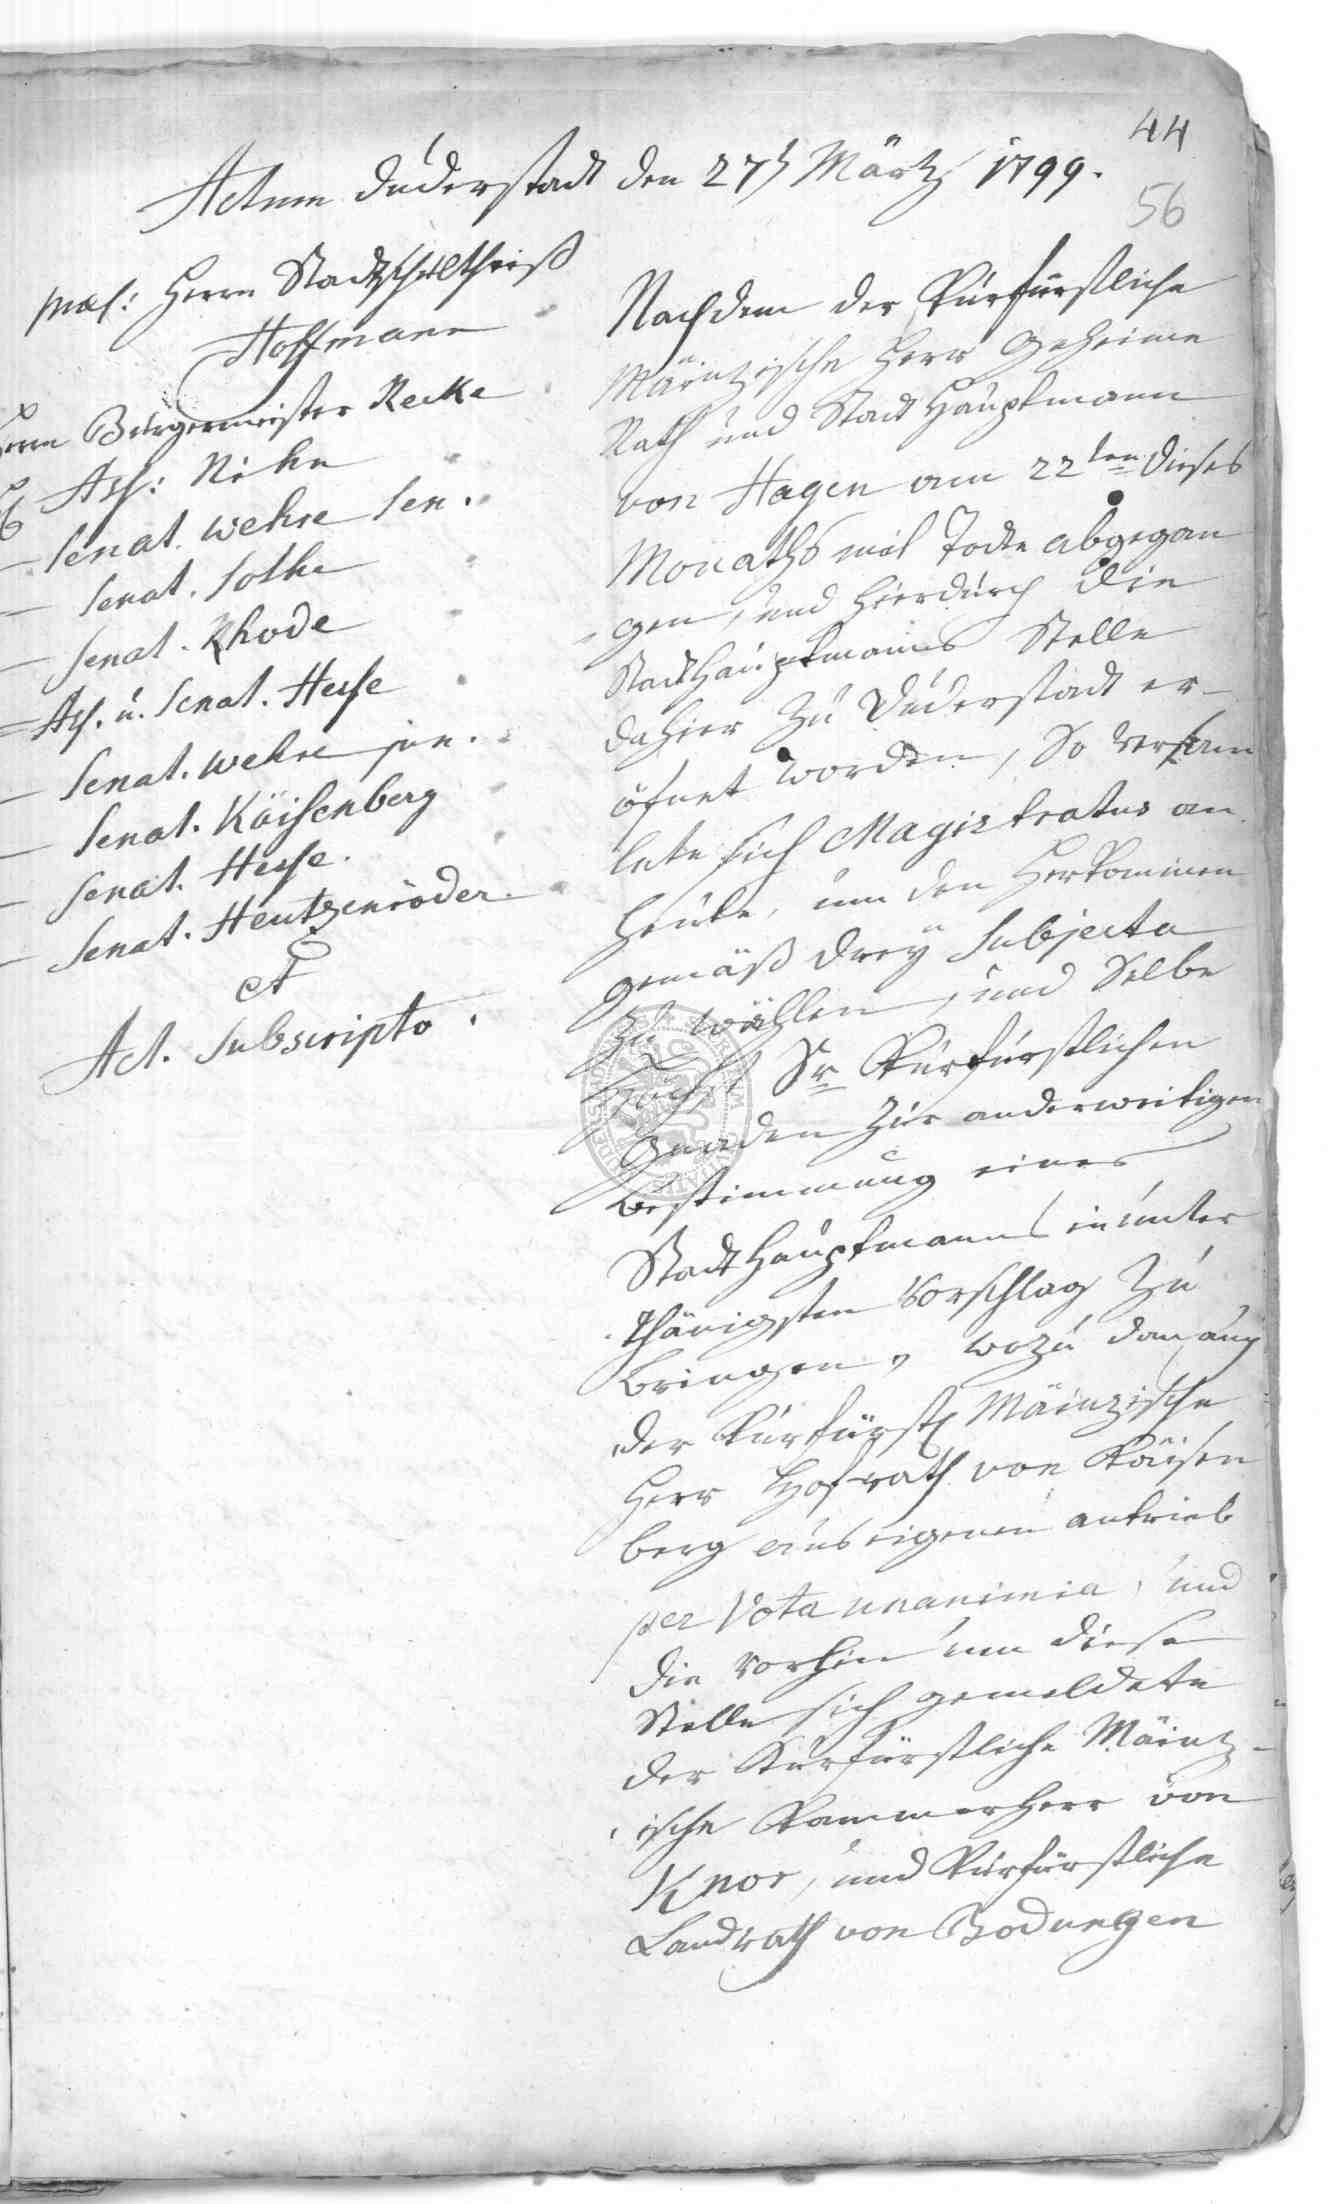 44
Actum Duderstadt den 27t März 1799.
56
praes: Herrn Stadtschultheiß
Hoffmann
Herrn Bürgermeister Recke
Ass: Nihn
Senat. Wehre sen.
Senat. Sothe
Senat. Rhode
Ass. u. Senat. Hesse
Senat. Wehre jun.
Senat. Käisenberg
Senat. Hesse.
Senat. Hentzenröder
et
Act. Subscripto.
Nachdem der Kurfürstliche
Mäinzische Herr Geheime
Rath und Stadt Hauptmann
von Hagen am 22ten dieses
Monaths mit Tode abgegan
gen, und hierdurch die
Stadthauptmanns Stelle
dahier zu Duderstadt er-
öfnet worden, So versam
lete sich Magistratus an
heute, um den Herkommen
gemäß drey Subjecta
zu wählen, und Selbe
Sr Kurfürstlichen
Gnaden zur anderweitigen
Bestimmung eines
Stadthauptmanns in unter
thänigsten Vorschlag zu
bringen, wozu dan auch
der Kurfürstl Mäinzische
Herr Hofrath von Käisen
berg aus eigenen antrieb
per Vota unanimia, und
die vorhin um diese
Stelle sich gemeldete
der Kurfürstliche Mäinz-
ische Kammerherr von
Knor, und Kurfürstliche
Landrath von Bodungen